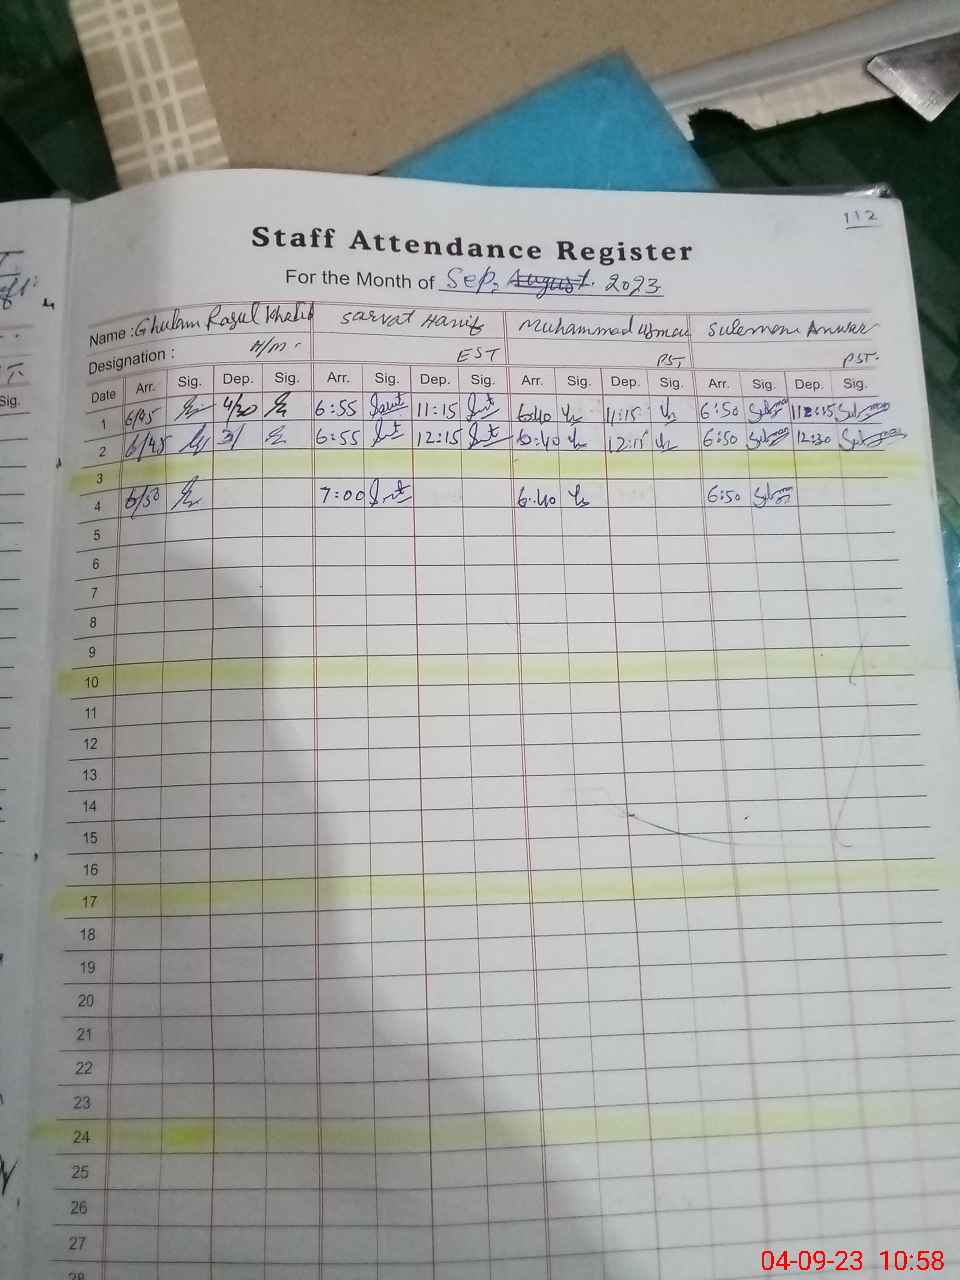 112
Staff Attendance Register
For the Month of Sep, August. 2023
Name : Ghulam Rasul Khalid Sarvat Hanif Muhammad Usman Suleman Anwar
Designation : H/M. EST PST PST.
Date Arr. Sig. Dep. Sig. Arr. Sig. Dep. Sig. Arr. Sig. Dep. Sig. Arr. Sig. Dep. Sig.
1 6/45 4/30 6:55 11:15 6:40 11:15 6:50
2 6/45 6:55 12:15 6:40 12:15 6:50 12:30
3
4 6/50 7:00 6:40 6:50
5
6
7
8
9
10
11
12
13
14
15
16
17
18
19
20
21
22
23
24
25
26
27
28
Sig.
04-09-23 10:58